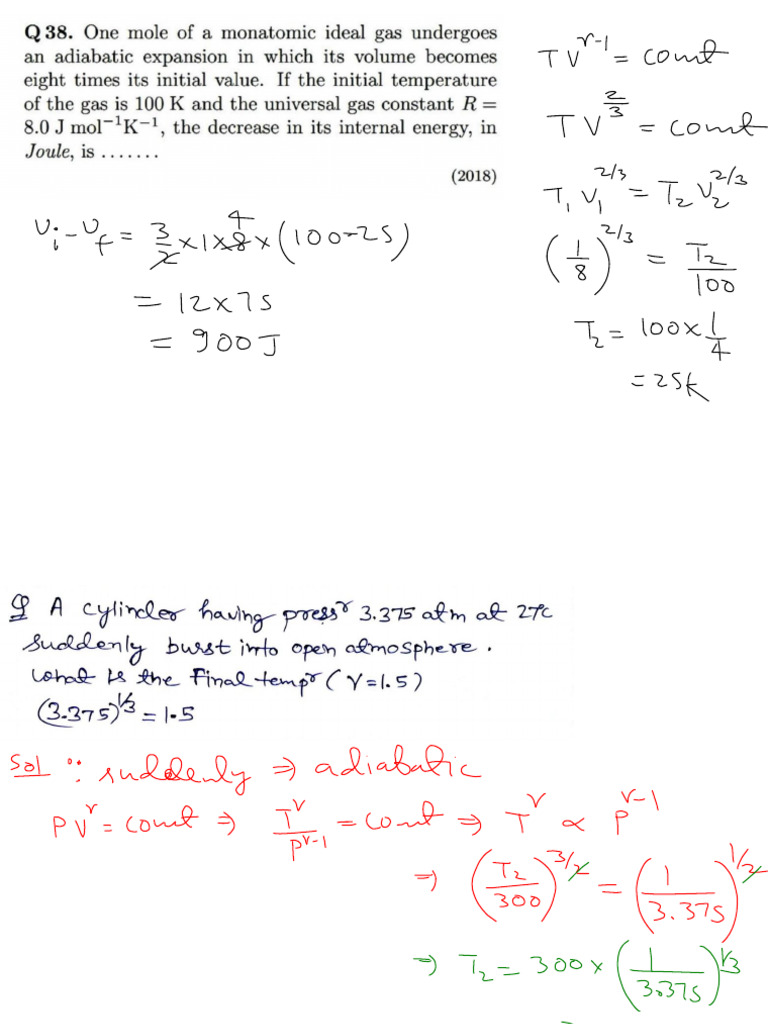 Q 38. One mole of a monatomic ideal gas undergoes
an adiabatic expansion in which its volume becomes
eight times its initial value. If the initial temperature
of the gas is 100 K and the universal gas constant R =
8.0 J mol⁻¹K⁻¹, the decrease in its internal energy, in
Joule, is .......
(2018)
TV^{γ-1} = const
TV^{2/3} = const
T₁V₁^{2/3} = T₂V₂^{2/3}
(1/8)^{2/3} = T₂/100
T₂ = 100 × 1/4
= 25K
U_i - U_f = 3/2 × 1 × 8 4 × (100-25)
= 12 × 75
= 900 J
Q A cylinder having press^r 3.375 atm at 27°C
suddenly burst into open atmosphere.
what is the final temp^r (γ = 1.5)
(3.375)^{1/3} = 1.5
Sol ∵ suddenly ⇒ adiabatic
PV^γ = const ⇒ T^γ/P^{γ-1} = const ⇒ T^γ ∝ P^{γ-1}
⇒ (T₂/300)^{3/2} = (1/3.375)^{1/2}
⇒ T₂ = 300 × (1/3.375)^{1/3}